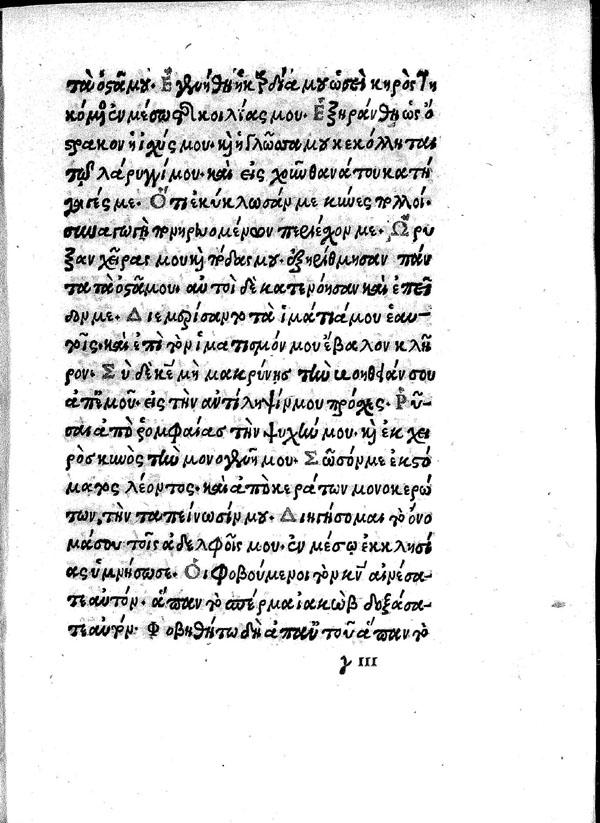 τὰ ὀςᾶ μου. Ἐγενήθη ἡ καρδία μου ὡσεὶ κηρὸς τη
κόμενος ἐν μέσῳ τῆς κοιλίας μου. Ἐξηράνθη ὡς ὄ
ςρακον ἡ ἰχύς μου. καὶ ἡ γλῶσσά μου κεκόλληται
τῷ λάρυγγί μου. καὶ εἰς χοῦν θανάτου κατή
γαγές με. Ὅτι ἐκύκλωσάν με κύνες πολλοί.
συναγωγὴ πονηρευομένων περιέχον με. Ὤρυ
ξαν χεῖρας μου καὶ πόδας μου. ἐξηρίθμησαν πάν
τα τὰ ὀςᾶ μου. αὐτοὶ δὲ κατενόησαν καὶ ἐπεῖ
δον με. Διεμερίσαντο τὰ ἱμάτιά μου ἑαυ-
τοῖς. καὶ ἐπὶ τὸν ἱματισμόν μου ἔβαλον κλῆ
ρον. Σὺ δὲ κύριε μὴ μακρύνῃς τὴν βοήθειάν σου
ἀπ' ἐμοῦ. εἰς τὴν ἀντίληψίν μου πρόσχες. Ῥῦ-
σαι ἀπὸ ῥομφαίας τὴν ψυχήν μου. καὶ ἐκ χει
ρὸς κυνὸς τὴν μονογενῆ μου. Σῶσόν με ἐκ ςό
ματος λέοντος. καὶ ἀπὸ κεράτων μονοκερώ
των, τὴν ταπείνωσίν μου. Διηγήσομαι τὸ ὄνο
μά σου τοῖς ἀδελφοῖς μου. ἐν μέσῳ ἐκκλησί
ας ὑμνήσω σε. Οἱ φοβούμενοι τὸν κύριον αἰνέσα-
τε αὐτόν. ἅπαν τὸ σπέρμα ἰακὼβ δοξάσα-
τε αὐτόν. Φοβηθήτω δὴ ἀπ' αὐτοῦ ἅπαν τὸ
γ III